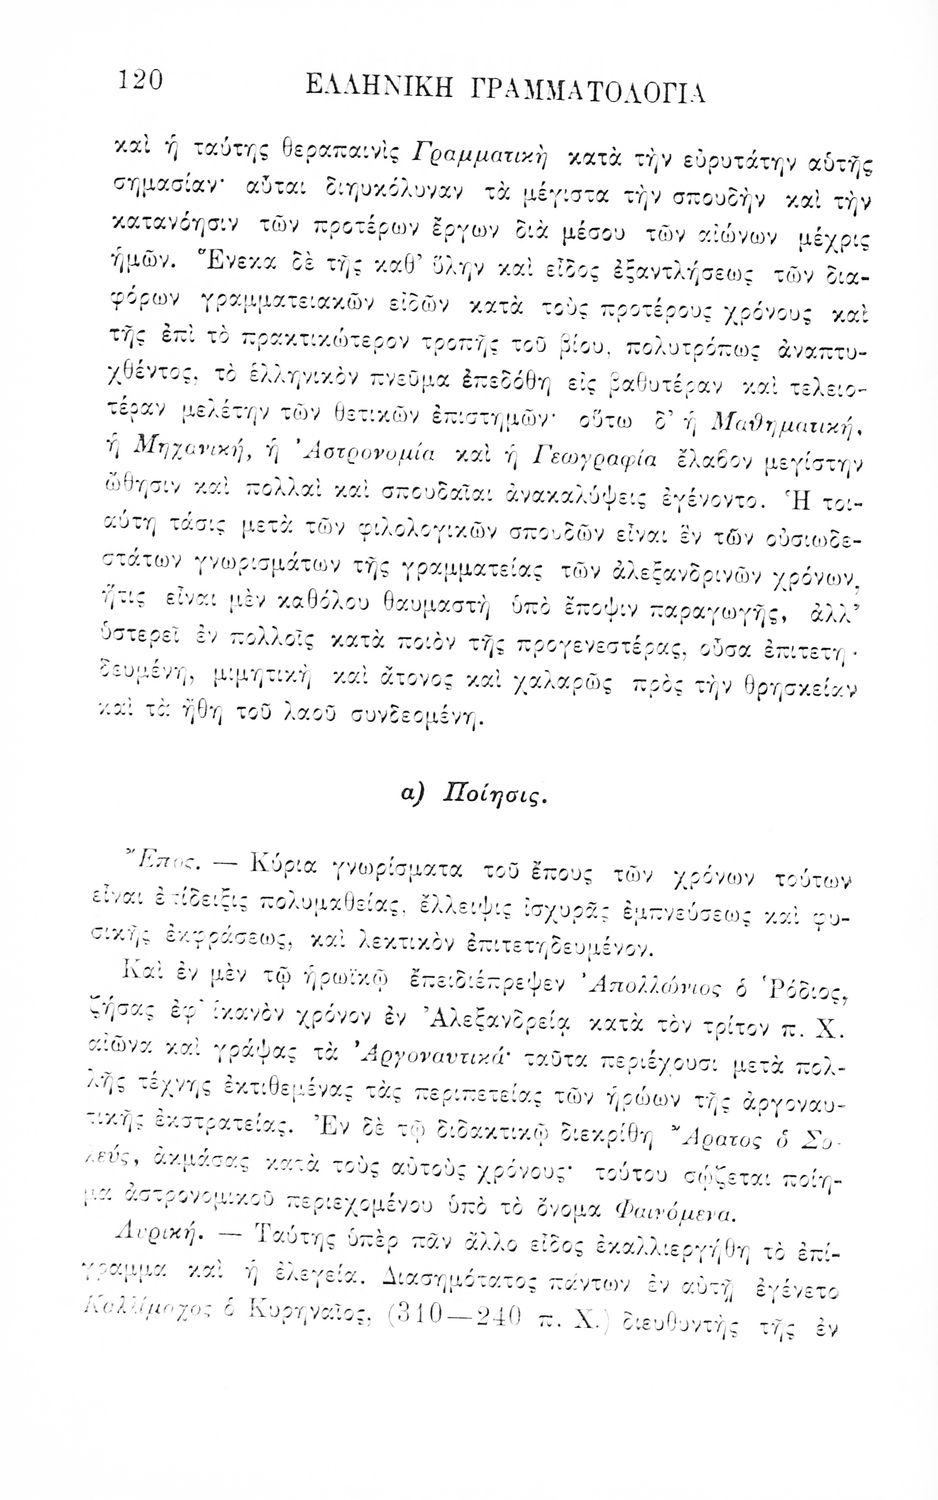 120 ΕΛΛΗΝΙΚΗ ΓΡΑΜΜΑΤΟΛΟΓΙΑ
καὶ ἡ ταύτης θεραπαινὶς Γραμματικὴ κατὰ τὴν εὐρυτάτην αὑτῆς
σημασίαν· αὗται διηυκόλυναν τὰ μέγιστα τὴν σπουδὴν καὶ τὴν
κατανόησιν τῶν προτέρων ἔργων διὰ μέσου τῶν αἰώνων μέχρις
ἡμῶν. Ἕνεκα δὲ τῆς καθ’ ὕλην καὶ εἶδος ἐξαντλήσεως τῶν δια-
φόρων γραμματειακῶν εἰδῶν κατὰ τοὺς προτέρους χρόνους καὶ
τῆς ἐπὶ τὸ πρακτικώτερον τροπῆς τοῦ βίου, πολυτρόπως ἀναπτυ-
χθέντος, τὸ ἑλληνικὸν πνεῦμα ἐπεδόθη εἰς βαθυτέραν καὶ τελειο-
τέραν μελέτην τῶν θετικῶν ἐπιστημῶν· οὕτω δ’ ἡ Μαθηματική,
ἡ Μηχανική, ἡ Ἀστρονομία καὶ ἡ Γεωγραφία ἔλαβον μεγίστην
ὤθησιν καὶ πολλαὶ καὶ σπουδαῖαι ἀνακαλύψεις ἐγένοντο. Ἡ τοι-
αύτη τάσις μετὰ τῶν φιλολογικῶν σπουδῶν εἶναι ἓν τῶν οὐσιωδε-
στάτων γνωρισμάτων τῆς γραμματείας τῶν ἀλεξανδρινῶν χρόνων,
ἥτις εἶναι μὲν καθόλου θαυμαστὴ ὑπὸ ἔποψιν παραγωγῆς, ἀλλ’
ὑστερεῖ ἐν πολλοῖς κατὰ ποιὸν τῆς προγενεστέρας, οὖσα ἐπιτετη-
δευμένη, μιμητικὴ καὶ ἄτονος καὶ χαλαρῶς πρὸς τὴν θρησκείαν
καὶ τὰ ἤθη τοῦ λαοῦ συνδεομένη.
α) Ποίησις.
Ἔπος. — Κύρια γνωρίσματα τοῦ ἔπους τῶν χρόνων τούτων
εἶναι ἐπίδειξις πολυμαθείας, ἔλλειψις ἰσχυρᾶς ἐμπνεύσεως καὶ φυ-
σικῆς ἐκφράσεως, καὶ λεκτικὸν ἐπιτετηδευμένον.
Καὶ ἐν μὲν τῷ ἡρωϊκῷ ἔπει διέπρεψεν Ἀπολλώνιος ὁ Ῥόδιος,
ζήσας ἐφ’ ἱκανὸν χρόνον ἐν Ἀλεξανδρείᾳ κατὰ τὸν τρίτον π. Χ.
αἰῶνα καὶ γράψας τὰ Ἀργοναυτικά· ταῦτα περιέχουσι μετὰ πολ-
λῆς τέχνης ἐκτιθεμένας τὰς περιπετείας τῶν ἡρώων τῆς ἀργοναυ-
τικῆς ἐκστρατείας. Ἐν δὲ τῷ διδακτικῷ διεκρίθη Ἄρατος ὁ Σο-
λεύς, ἀκμάσας κατὰ τοὺς αὐτοὺς χρόνους· τούτου σῴζεται ποίη-
μα ἀστρονομικοῦ περιεχομένου ὑπὸ τὸ ὄνομα Φαινόμενα.
Λυρική. — Ταύτης ὑπὲρ πᾶν ἄλλο εἶδος ἐκαλλιεργήθη τὸ ἐπί-
γραμμα καὶ ἡ ἐλεγεία. Διασημότατος πάντων ἐν αὐτῇ ἐγένετο
Καλλίμαχος ὁ Κυρηναῖος, (310—240 π. Χ.) διευθυντὴς τῆς ἐν